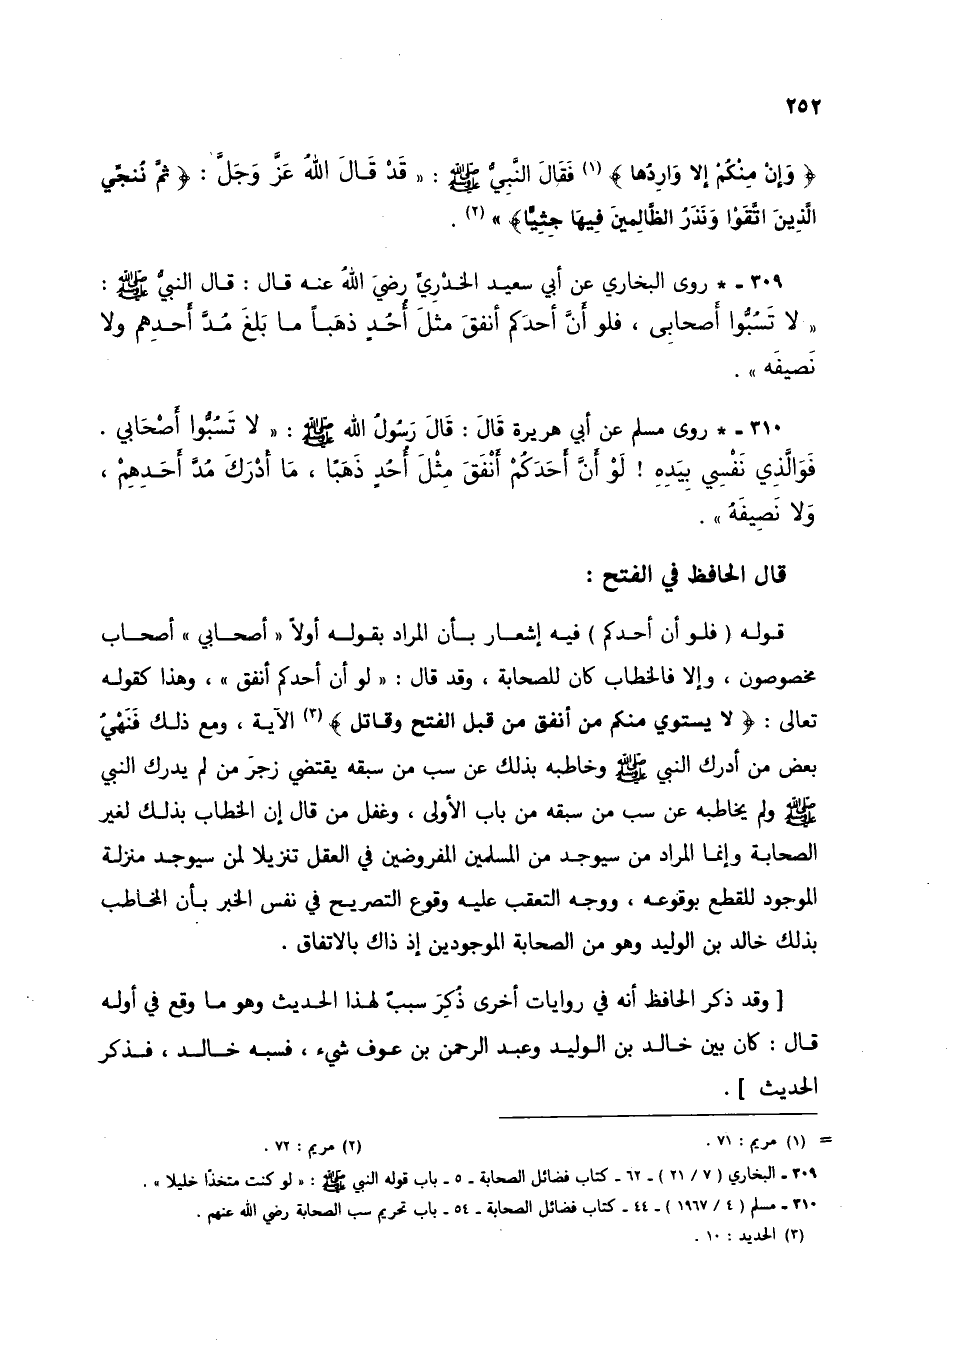 ٢٥٢
﴿ وَإِنْ مِنْكُمْ إلا وَارِدُها ﴾ (١) فَقَالَ النَّبِيُّ ﷺ : « قَدْ قَـالَ اللهُ عَزَّ وَجَلَّ : ﴿ ثُمَّ نُنَجِّي
الَّذِينَ اتَّقَوْا وَنَذَرُ الظَّالِمِينَ فِيهَا جِثِيًّا﴾ » (٢) .
٣٠٩ ـ * روى البخاري عن أبي سعيـد الخدْرِيِّ رضيَ اللهُ عنـه قـال : قـال النبيُّ ﷺ :
« لا تَسُبُّوا أصحابِي ، فلو أَنَّ أحدَكم أنفقَ مثلَ أُحُـدٍ ذهبـاً مـا بَلغَ مُـدَّ أَحـدِهِم ولا
نَصِيفَه » .
٣١٠ ـ * روى مسلم عن أبي هريرة قَالَ : قَالَ رَسُولُ الله ﷺ : « لا تَسُبُّوا أَصْحَابِي .
فَوَالَّذِي نَفْسِي بِيَدِهِ ! لَوْ أَنَّ أَحَدَكُمْ أَنْفَقَ مِثْلَ أُحُدٍ ذَهَبًا ، مَا أَدْرَكَ مُدَّ أَحَـدِهِمْ ،
وَلا نَصِيفَهُ » .
قال الحافظ في الفتح :
قولـه ( فلـو أن أحـدكم ) فيـه إشعـار بـأن المراد بقولـه أولاً « أصحـابي » أصحـاب
مخصوصون ، وإلا فالخطاب كان للصحابة ، وقد قال : « لو أن أحدكم أنفق » ، وهذا كقولـه
تعالى : ﴿ لا يستوي منكم من أنفق من قبل الفتح وقـاتل ﴾ (٣) الآيـة ، ومع ذلـك فَنَهْيُ
بعض من أدرك النبي ﷺ وخاطبه بذلك عن سب من سبقه يقتضي زجرَ من لم يدرك النبي
ﷺ ولم يخاطبه عن سب من سبقه من باب الأولى ، وغفل من قال إن الخطاب بذلـك لغير
الصحابـة وإنمـا المراد من سيوجـد من المسلمين المفروضين في العقل تنزيلا لمن سيوجـد منزلـة
الموجود للقطع بوقوعـه ، ووجـه التعقب عليـه وقوع التصريـح في نفس الخبر بـأن المخـاطب
بذلك خالد بن الوليد وهو من الصحابة الموجودين إذ ذاك بالاتفاق .
[ وقد ذكر الحافظ أنه في روايات أخرى ذُكِرَ سببٌ لهـذا الحـديث وهو مـا وقع في أولـه
قـال : كان بين خـالـد بن الـوليـد وعبـد الرحمن بن عـوف شيء ، فسبـه خـالـد ، فـذكر
الحديث ] .
= (١) مريم : ٧١ . (٢) مريم : ٧٢ .
٣٠٩ ـ البخاري ( ٧ / ٢١ ) ـ ٦٢ ـ كتاب فضائل الصحابة ـ ٥ ـ باب قوله النبي ﷺ : « لو كنت متخذًا خليلا » .
٣١٠ ـ مسلم ( ٤ / ١٩٦٧ ) ـ ٤٤ ـ كتاب فضائل الصحابة ـ ٥٤ ـ باب تحريم سب الصحابة رضي الله عنهم .
(٣) الحديد : ١٠ .